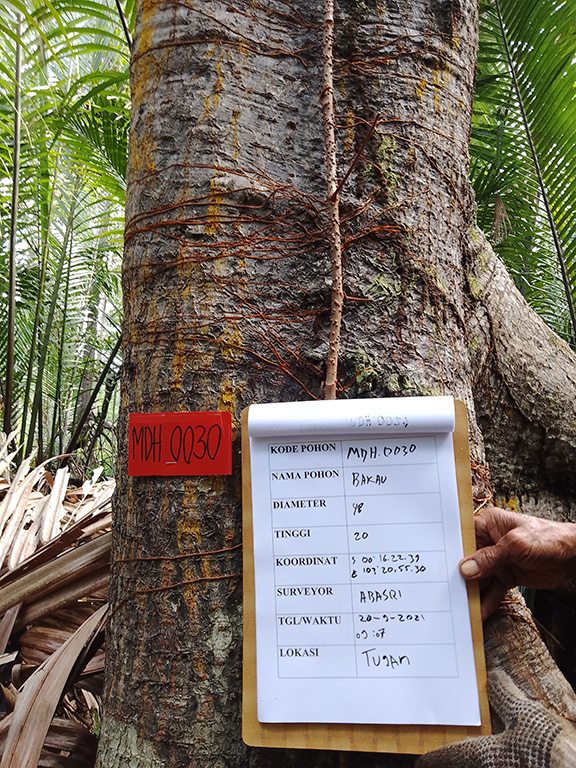 MDH_0030
MDH.0030
KODE POHON MDH.0030
NAMA POHON BAKAU
DIAMETER 48
TINGGI 20
KOORDINAT S 00°16.22.39
E 103°20.55.30
SURVEYOR ABASRI
TGL/WAKTU 20-9-2021
09:07
LOKASI TUGAN